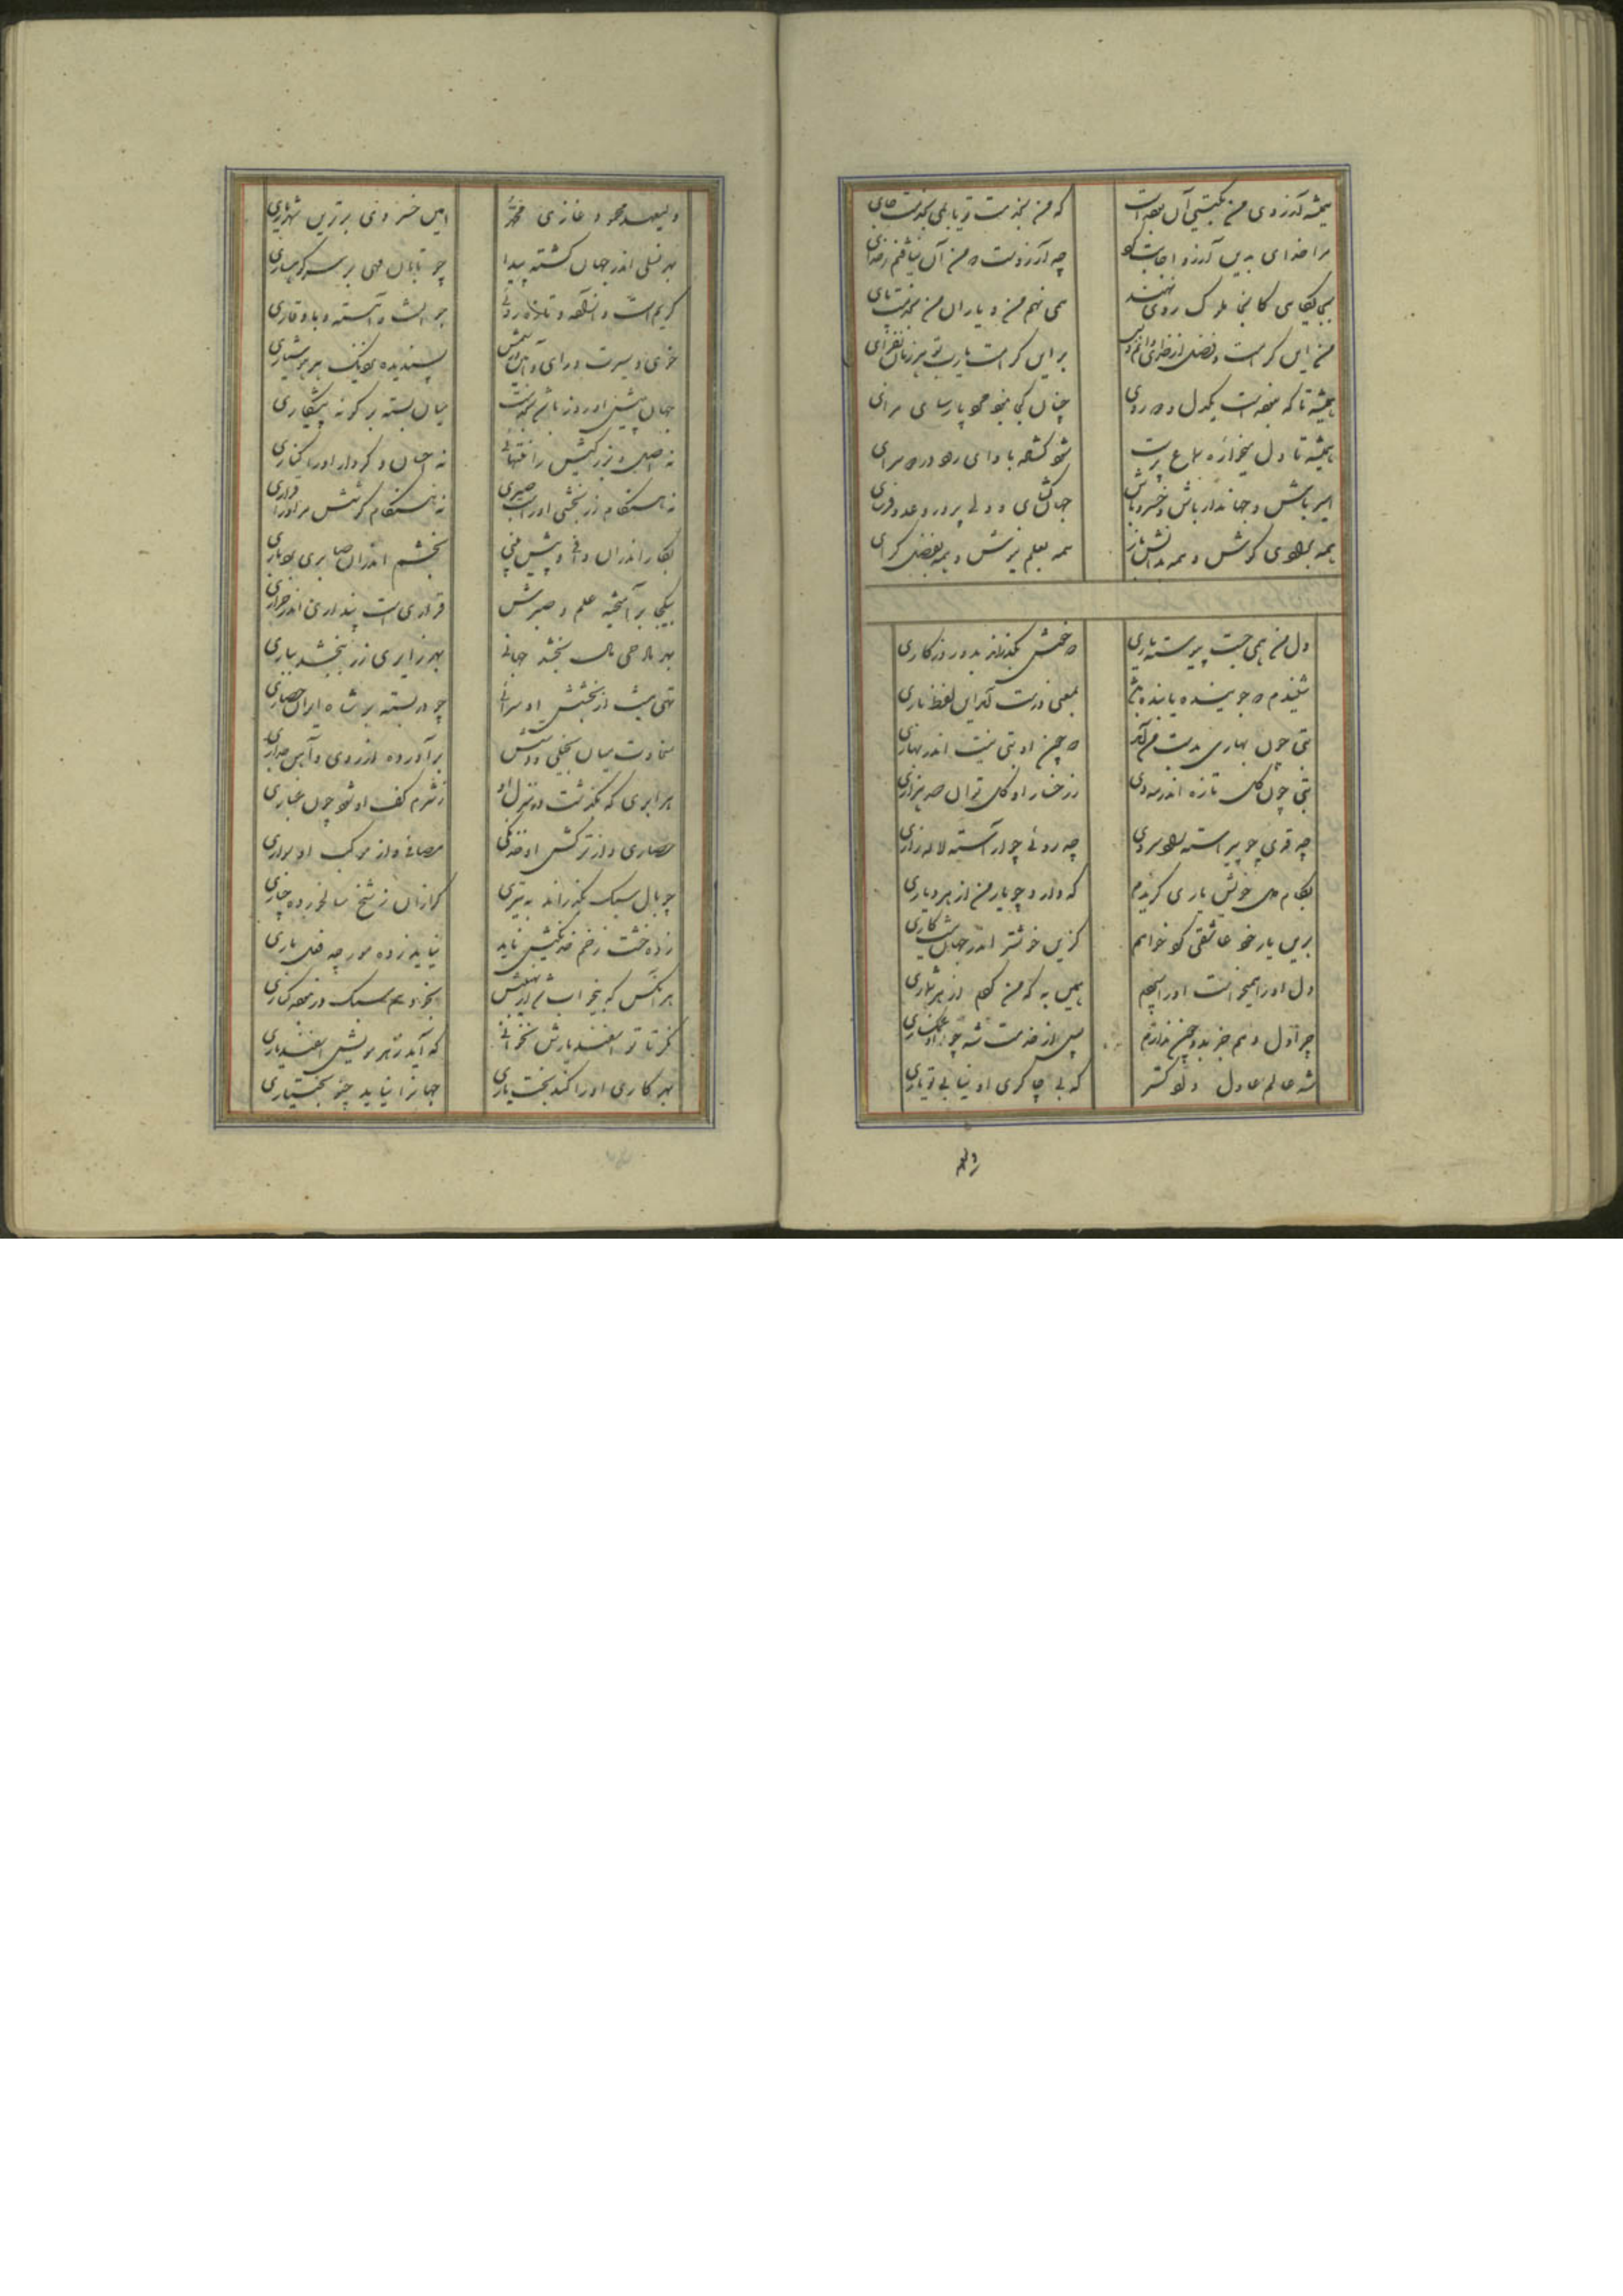 همیشه آرزوی من بگیتی آن بوده است که من بخدمت تو یابمی بخدمت جای
مرا خدای بدین آرزو اجابت کرد چه آرزوست که من آن نیافتم ز خدای
بجایگاهی کانجا ملوک روی نهند همی نهم من و یاران من بخدمت پای
من این کرامت و فضل از خدای دانم و بس براین کرامت یارب تو هر زمان بفزای
همیشه تا که نبوده است یکدل و دوروی چنان کجا نبود پارسای
همیشه تا دل میخواره سماع پرست شود گشاده باوای رود رودسرای
امیر باش و جهاندار باش و خسرو باش جهان گشای و ولی پرور و عدو فرسای
همه بداد کوش و همه بدانش ناز همه بعلم نیوش و همه بفضل گرای
دل من همی جست پیوسته یاری که خوش بگذراند بدو روزگاری
شنیدم که جوینده یابنده باشد بمعنی درست آمد این لفظ باری
بتی چون بهاری بدست من آمد که چون او بتی نیست اندر بهاری
بتی چون گل تازه اندر مه دی ز رخسار او گل توان چید باری
چه قدی چو پیراسته زاد سروی چه رویی چو آراسته لاله زاری
بکام دل خویش یاری گزیدم که دارد چو یار من امروز یاری
بدین یار خود عاشقی کرد خواهم کزین خوشتر اندر جهان نیست کاری
دل او را همی خواست او را سپردم همین به که من کردم از هر شماری
چرا دل دهم جز بدو چون ندارم پس از خدمت شه چو او غمگساری
شه عالم عادل دادگستر که بی چاکری او نیابی تو یاری
ولیعهد
ولیعهد محمود غازی محمد امین خسروی برترین شهریاری
بهر فضلی اندر جهان گشته پیدا چو تابان مهی بر سر کوهساری
کریم است و آزاده و تازه رویی جوان است و آهسته و باوقاری
خوی و سیرت و رای و آیین پسندیده نزدیک هر هوشیاری
جهان پیش او روز و شب بخدمت میان بسته بر گونه پیشکاری
نه اصل و بزرگیش را منتهایی نه احسان و کردار او را کناری
نه هنگام زر بخشی او را صبوری نه هنگام کوشش مر او را قراری
بکار اندران و پیش بینی بخشم اندران صابری بردباری
بیکجا برآمیخته علم و صبرش قراری است پنداری اندر قراری
بهر مادحی مال بخشد جهانی بهر زایری زر ببخشد بباری
تهی نیست از بخشش او سرایی چو در بسته بر شاه ایران حصاری
سخاوت میان بخیلی و دستش برآورده از روی و آهن جداری
هر ابری که بگذشت بر منزل او ز شرم کف او شود چون غباری
حصاری و از ترکش او خدنگی مصافی و از موکب او سواری
چو بال سبک بگذراند به تیزی گرازان ز شخ سالخورده چناری
زده خشت زخم خدنگیش ناید نیاید زده مورچه فعل ماری
هر آنکس که بیخواب شد از نهیبش بخوابد هم سبک در کناری
نگر تا تو اسفندیارش نخوانی که آید ز هر مویش اسفندیاری
بهر کاری او را کند بخت یاری جهان را نیاید چنو بختیاری